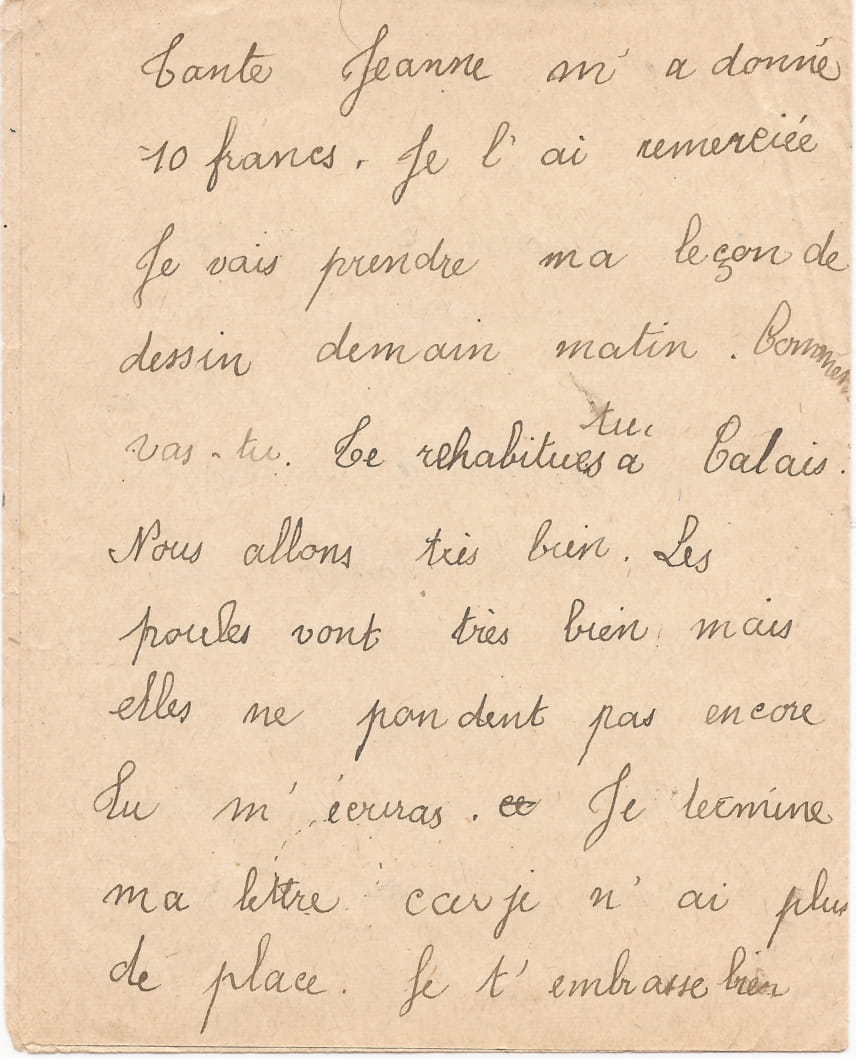 Tante Jeanne m' a donné
10 francs. Je l' ai remerciée
Je vais prendre ma leçon de
dessin demain matin. Commen
vas-tu. Te rehabitues tu a Calais.
Nous allons très bien. Les
poules vont très bien mais
elles ne pondent pas encore
Tu m' écriras. Je termine
ma lettre car je n' ai plus
de place. Je t' embrasse bien